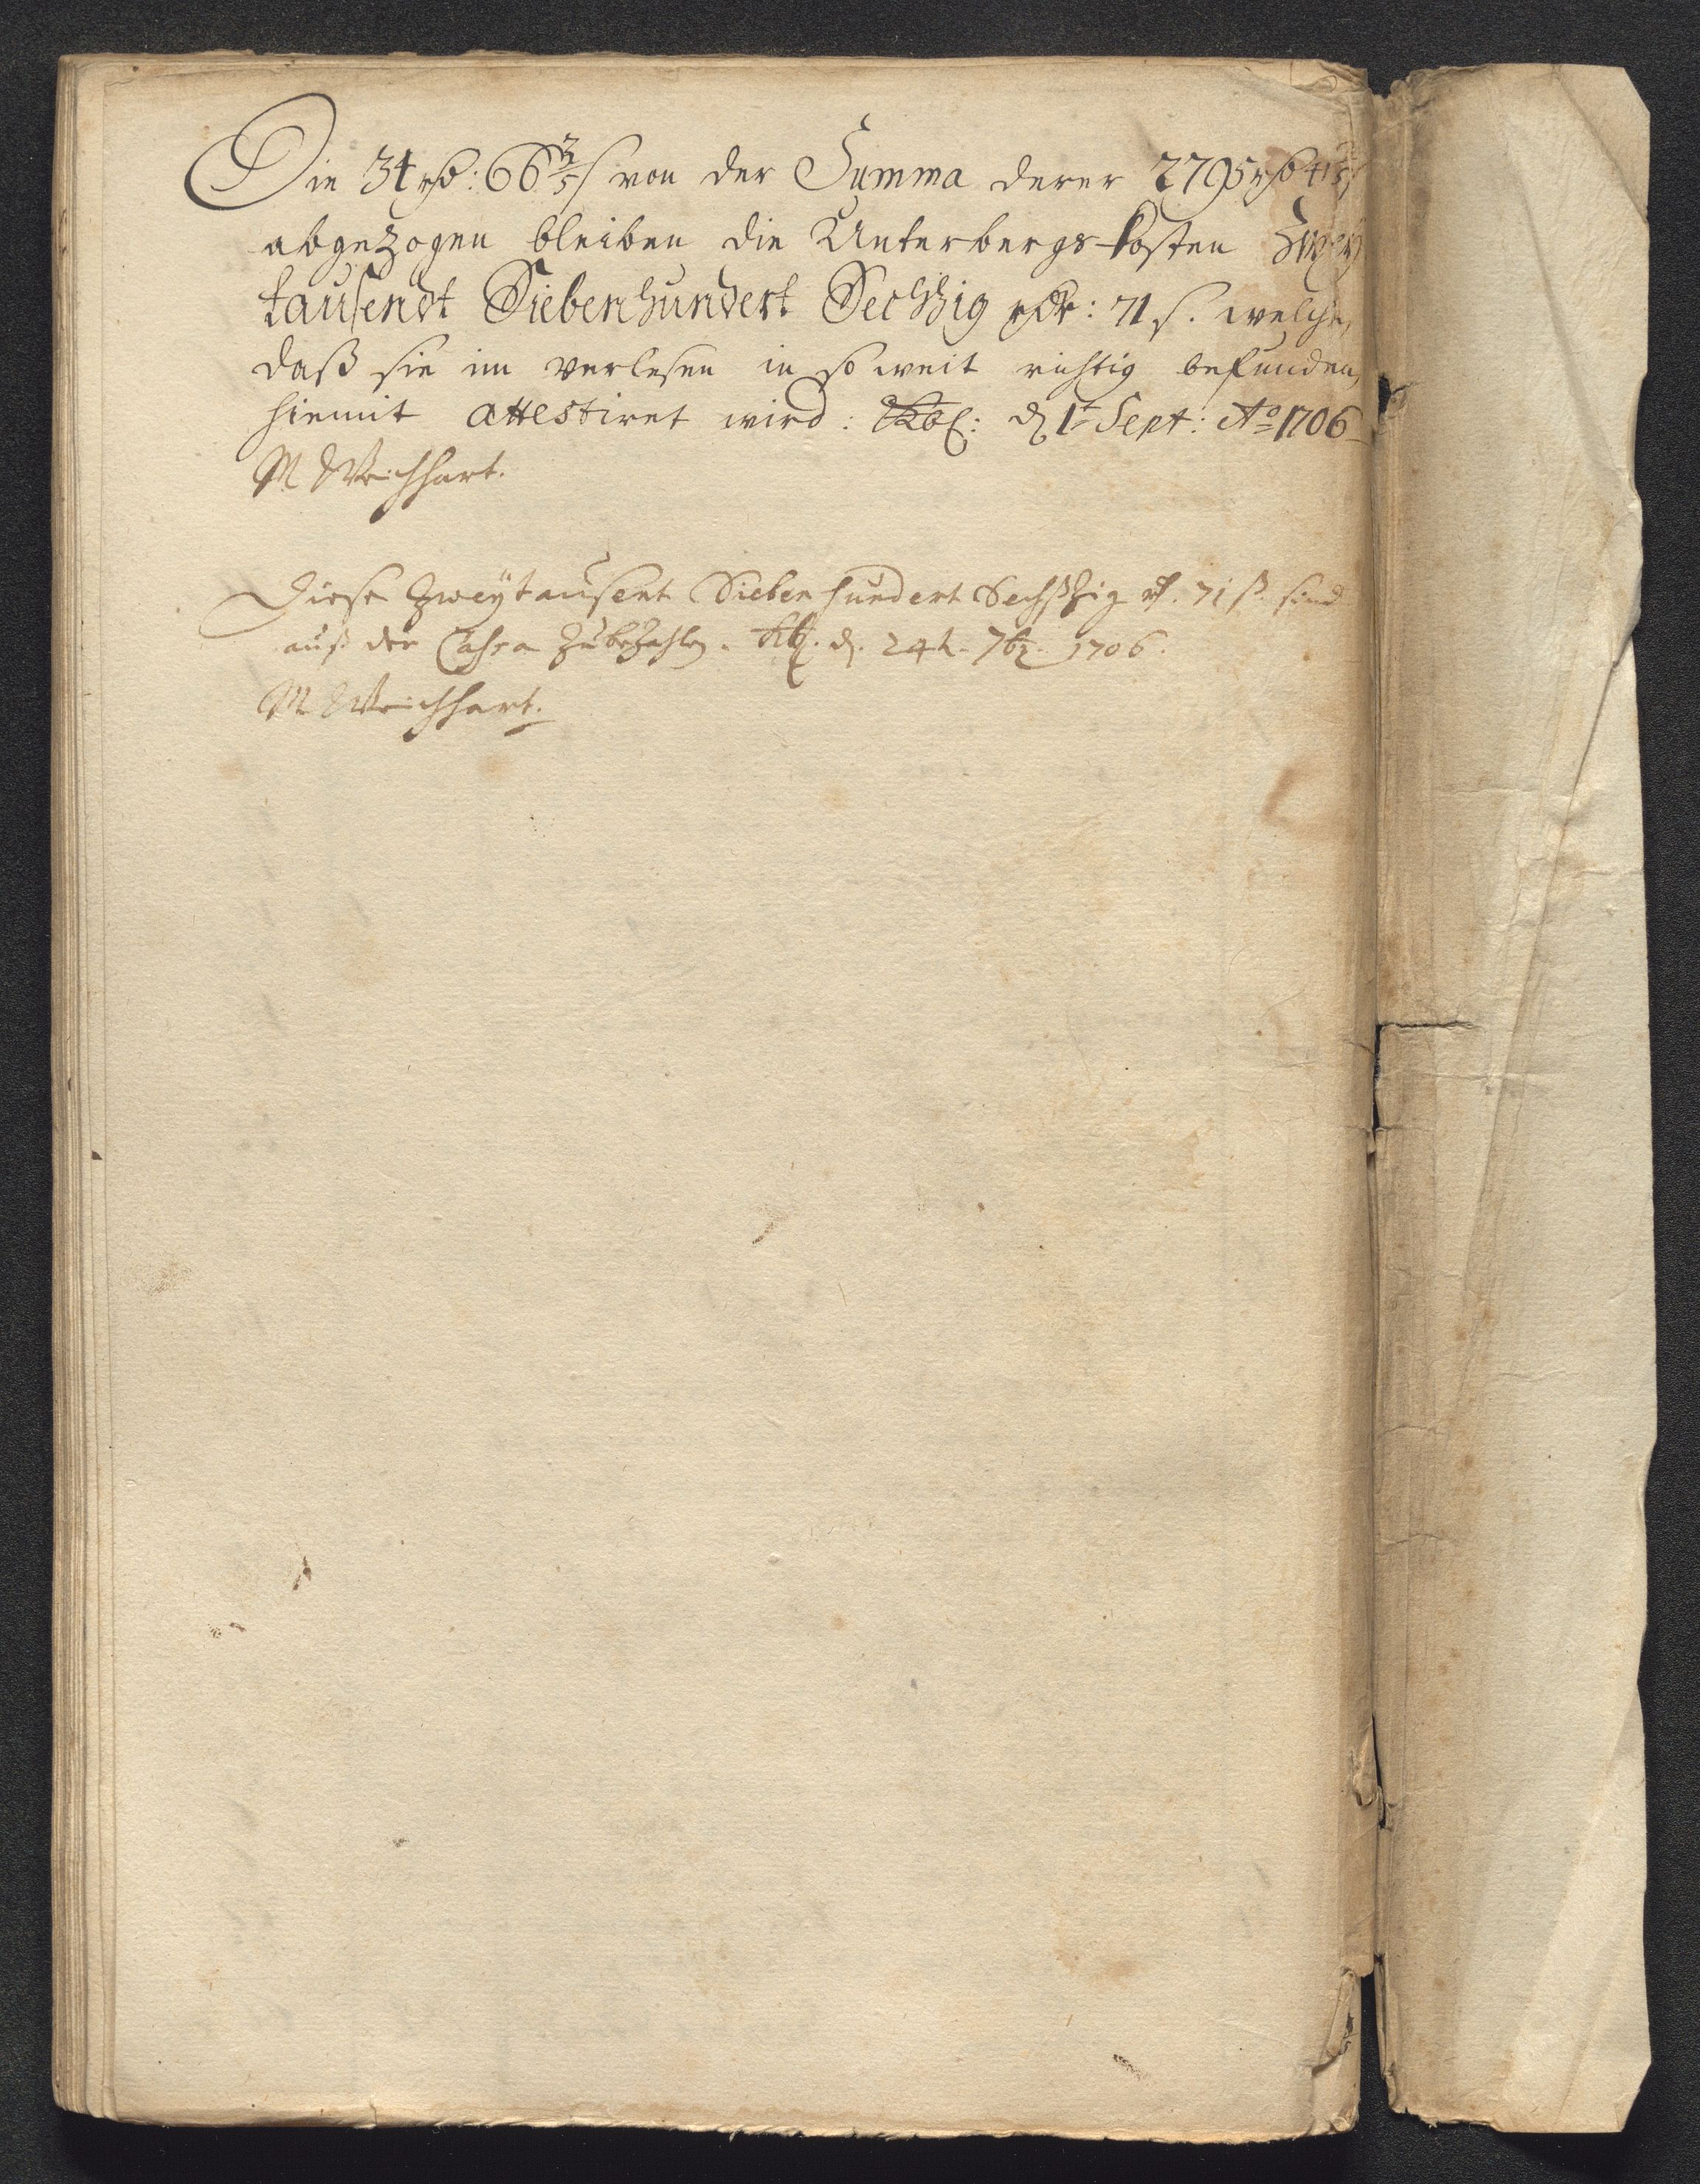 Die 34 rd: 66 3/5 s von der Summa derer 2795 rd 41 3/5 s
abgezogen bleiben die Unterbergs-kosten Zwey
tausendt Siebenhundert Sechßig rdr: 71 s. welche,
daß sie im verlesen in so weit richtig befunden,
hiemit attestiret wird: Kbg: d 1t Sept: Ao 1706
M Weichhart.
Diese Zweÿtausent Sieben hundert Sechßzig rd. 71 ß sind
auß der Cassa zu bezahlen. Kbg. d. 24t. 7br. 1706.
M Weichhart.